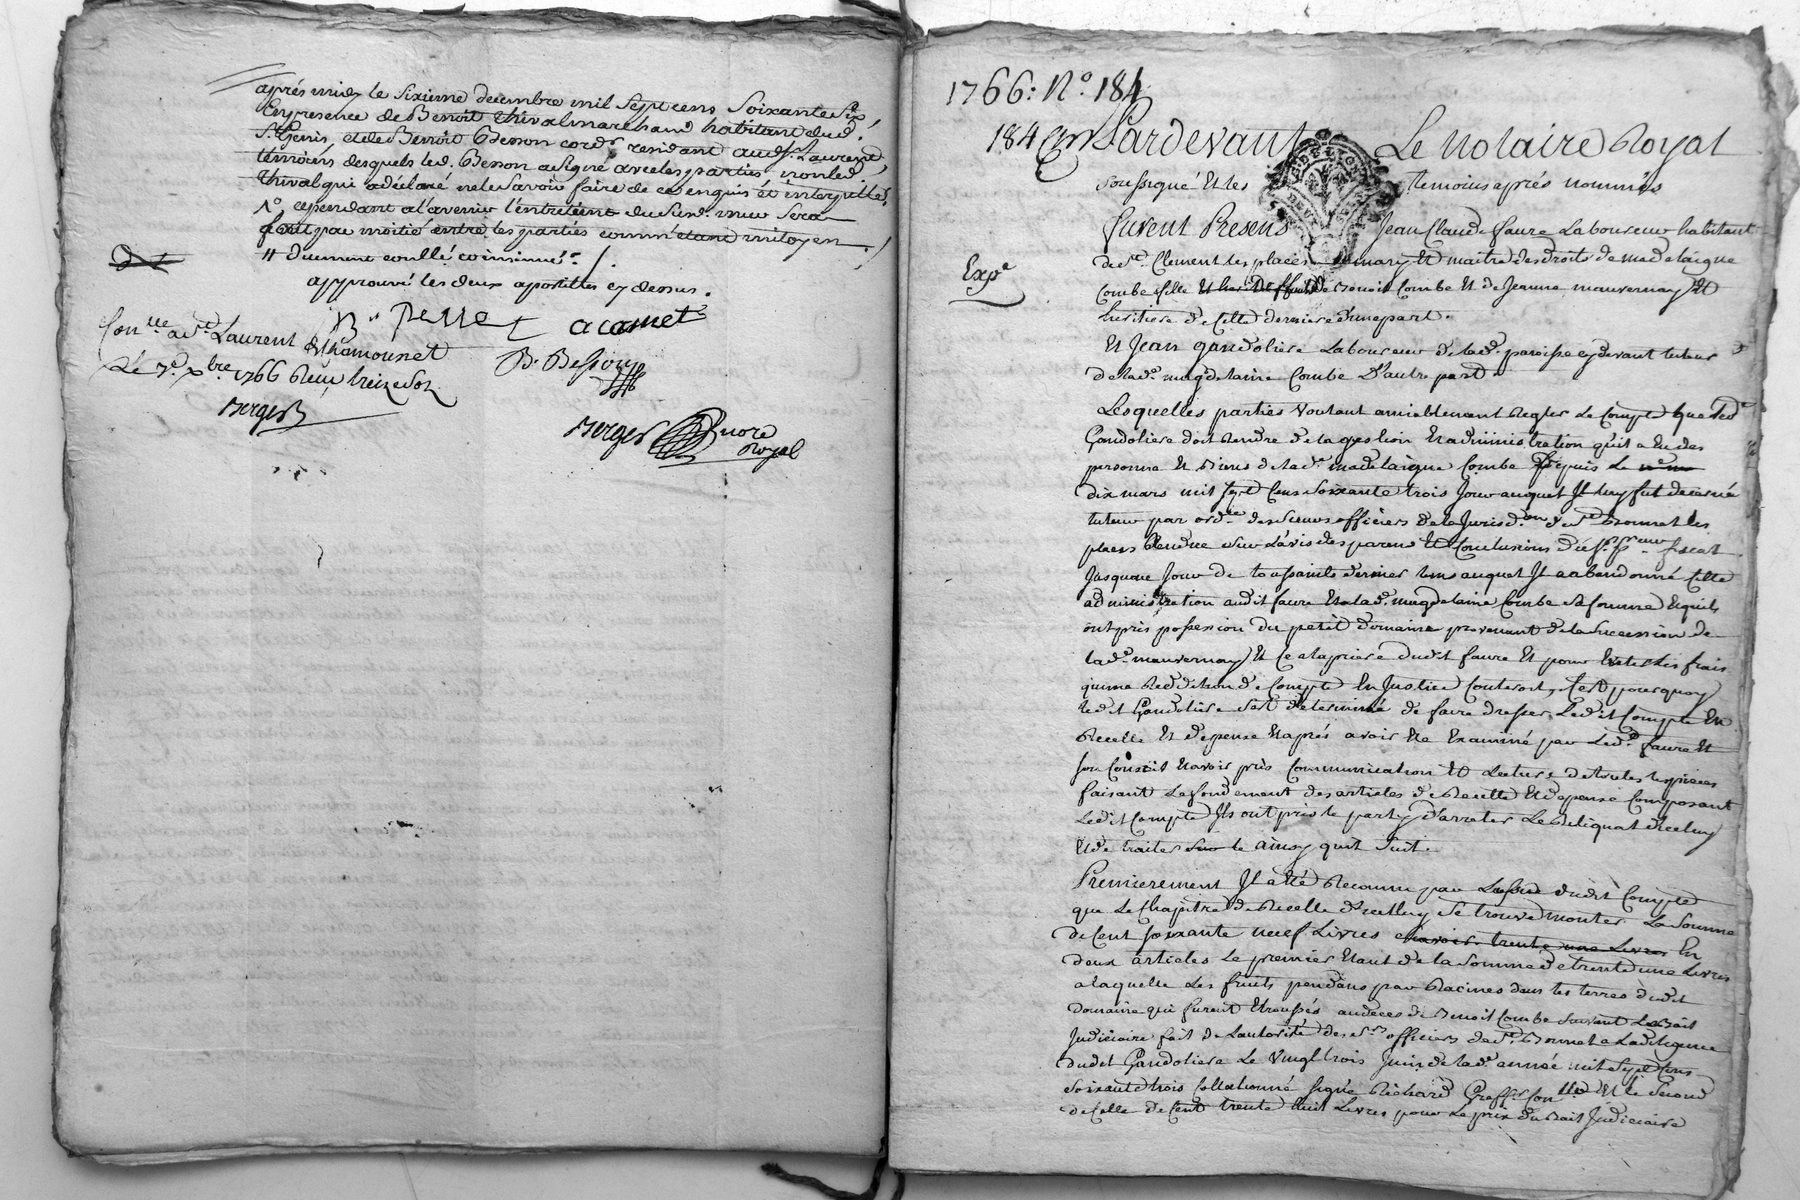 après midy le sixieme decembre mil sept cens soixante six
En presence de Benoit thival marchand habitant dud.
St. Genis, et de Benoit Besson cordr. residant aud. St. Laurend
témoins desquels led. Besson a signé avec les parties non led.
thival qui a déclaré ne le savoir faire de ce enquis et interpellé.
1º. cependant a l'avenir l'entretient du susd. mur sera
fait par moitié entre les parties comme étant mitoyen
// duement conllé et insinué
approuvé les deux apostilles cy dessus.
B. Peysse
acamet
Conlle. a St. Laurent de Chamousset
B. Besson
Le 7e. xbre. 1766 Reçu treize sols
Berger
Berger nore
Royal
1766: Nº. 184
184 Pardevant Le Notaire Royal
soussigné Et les temoins après nommés
Furent Presens Jean Claude faure Laboureur habitant
Expé
de St. Clement les places mary Et maitre des droits de madelaigne
Combe fille Et de Benoit Combe Et de Jeanne mauvernay Et
heritiere de Cette derniere d'une part.
Et Jean gandoliere Laboureur de lad. paroisse cy devant tuteur
de lad. magdelaine Combe D'autre part.
Lesquelles parties voulant amiablement Regler Le Compte que led.
Gandoliere doit Rendre de la gestion Et administration qu'il a Eu des
personne Et Biens de lad. madelaigne Combe depuis Le
dix mars mil sept Cens soixante trois Jour auquel Il luy fut decerné
tuteur par ordce. des sieurs officiers de la Jurisdon. de St. Bonnet les
places Rendue sur L'avis des parens Et Conclusions du Sr. preur. fiscal
Jusqu'au Jour de toussaints dernier tems auquel Il a abandonné Cette
administration audit faure Et a lad. magdelaine Combe sa femme Lesquels
ont pris possession du petit domaine provenant de la succession de
lad. mauvernay Et Ce a la priere dudit faure Et pour Eviter les frais
qu'une Reddition de Compte En Justice Couteroit, C'est pourquoy
ledit Gandoliere s'est determiné de faire dresser Ledit Compte En
Recette Et depense Et après avoir Eté Examiné par Led. faure Et
son Conseil Et avoir pris Communication Et Lecture de toutes les pieces
faisant Le fondement des articles de Recette Et depense Composant
Ledit Compte Ils ont pris le party d'arreter Le Reliquat d'Iceluy
Et de traiter sur le ainsy qu'il suit.
Premierement Il a Eté Reconnu par dudit Compte
que Le Chapitre de Recette d'Iceluy se trouve monter La somme
de Cent soixante neuf Livres En
deux articles Le premier Etant de la somme de trente une Livres
a laquelle Les fruits pendans par Racines dans les terres dudit
domaine qui furent au deces de Benoit Combe suivant Le Bail
Judiciaire fait de L'autorité des Srs. officiers de St. Bonnet a La diligence
dudit Gandoliere Le vingt trois Juin de lad. année mil sept Cens
soixante trois Collationné signé Richard Greffr. Conllé Et le second
de Celle de Cent trente huit Livres pour Le prix du Bail Judiciaire